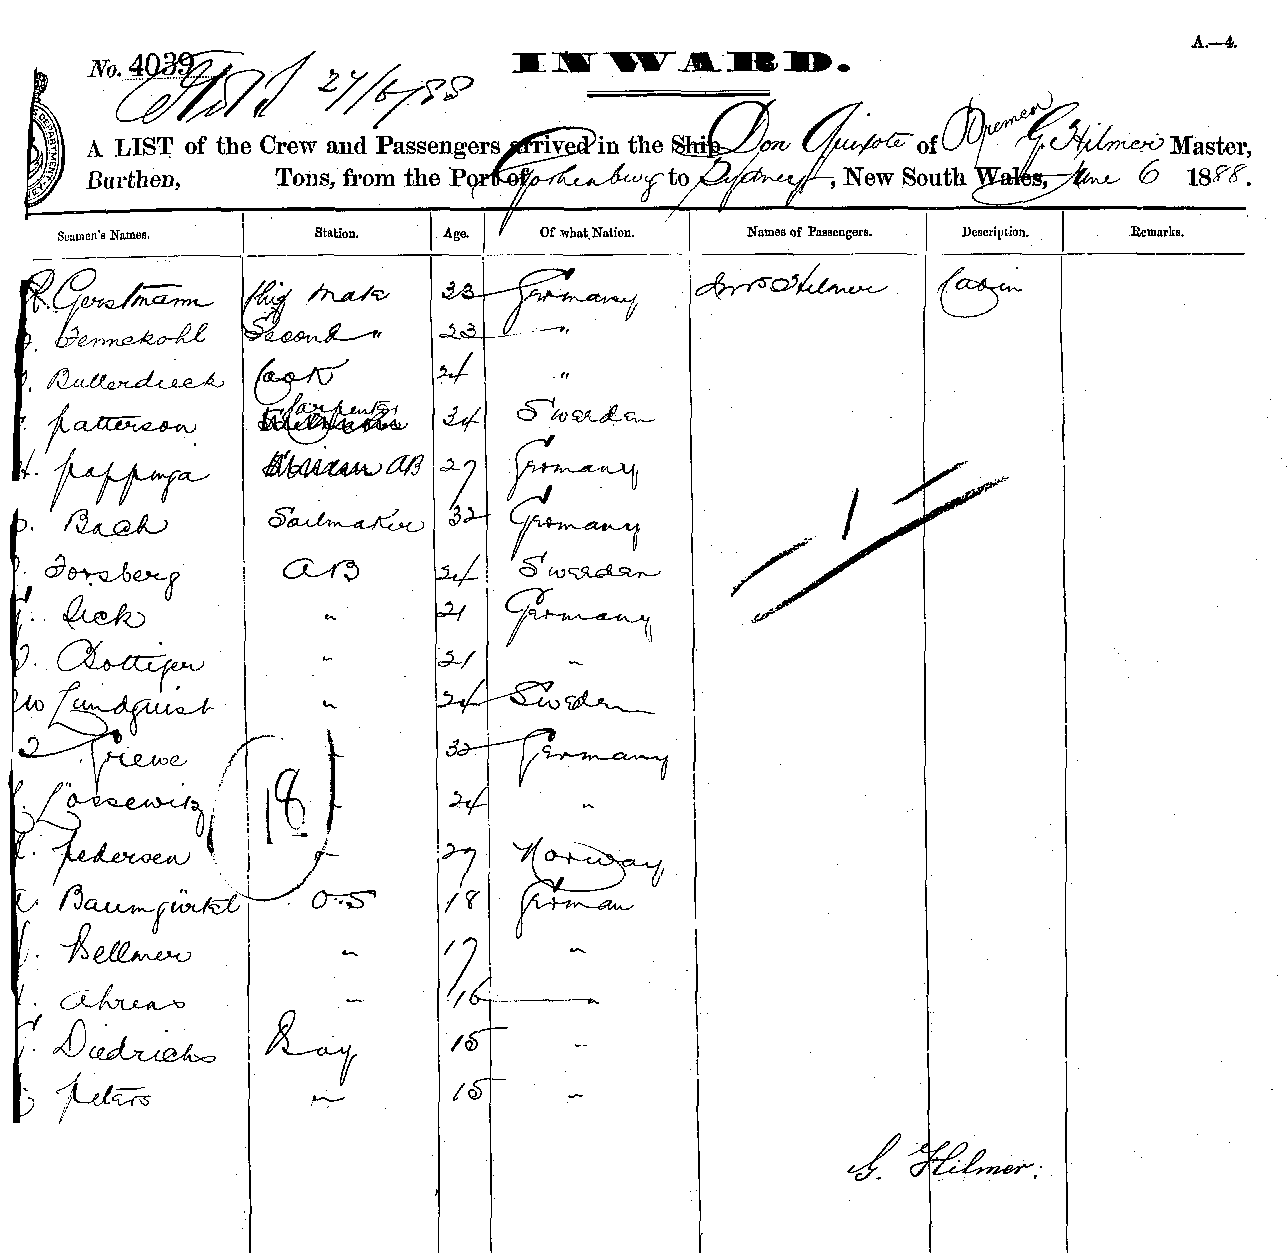 A.—4.
No. 4039
INWARD.
27/6/88
A LIST of the Crew and Passengers arrived in the Ship Don Quixote of Bremen G. Hilmer Master,
Burthen, Tons, from the Port of Gothenburg to Sydney, New South Wales, June 6 1888.
Seamen's Names. Station. Age. Of what Nation. Names of Passengers. Description. Remarks.
Gerstmann Chif Mate 33 Germany Mrs Hilmer Cabin
Tennekohl Second " 23 "
Bullerdieck Cook 24 "
Patterson Carpenter 34 Sweeden
Pappinga AB 27 Germany
Bach Sailmaker 32 Germany
Forsberg AB 24 Sweeden
Sick " 21 Germany
Bottiger " 21 "
Lundquist " 24 Sweden
Griewe " 32 Germany
Lossewitz " 24 "
18
1
Pedersen " 27 Norway
Baumgürtel O.S 18 German
Bellmer " 17 "
Ahrens " 16 "
Diedrichs Boy 15 "
Peters " 15 "
G. Hilmer.